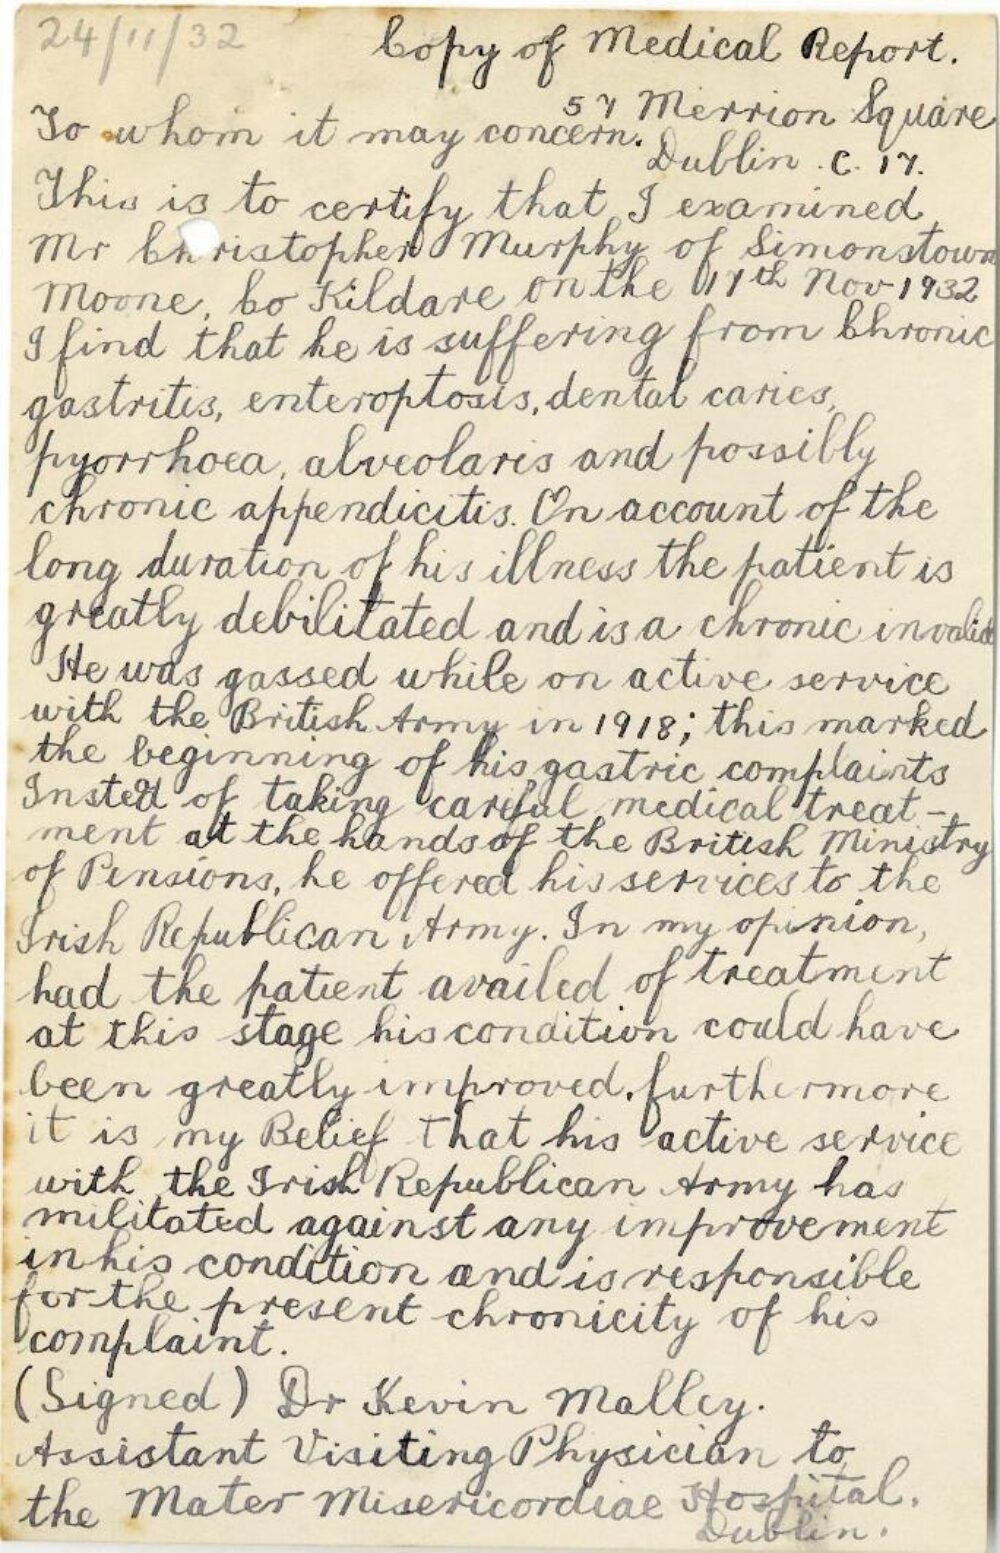 24/11/32
Copy of Medical Report.
57 Merrion Square
To whom it may concern.
Dublin. C. 17.
This is to certify that I examined
Mr Christopher Murphy of Simonstown
Moone, Co Kildare on the 17th Nov 1932
I find that he is suffering from Chronic
gastritis, enteroptosis, dental caries,
pyorrhoea, alveolaris and possibly
chronic appendicitis. On account of the
long duration of his illness the patient is
greatly debilitated and is a chronic invalid
He was gassed while on active service
with the British Army in 1918; this marked
the beginning of his gastric complaints
Insted of taking careful medical treat-
ment at the hands of the British Ministry
of Pensions, he offered his services to the
Irish Republican Army. In my opinion,
had the patient availed of treatment
at this stage his condition could have
been greatly improved. furthermore
it is my Belief that his active service
with the Irish Republican Army has
militated against any improvement
in his condition and is responsible
for the present chronicity of his
complaint.
(Signed) Dr Kevin Malley.
Assistant Visiting Physician to
the Mater Misericordiae Hospital.
Dublin.